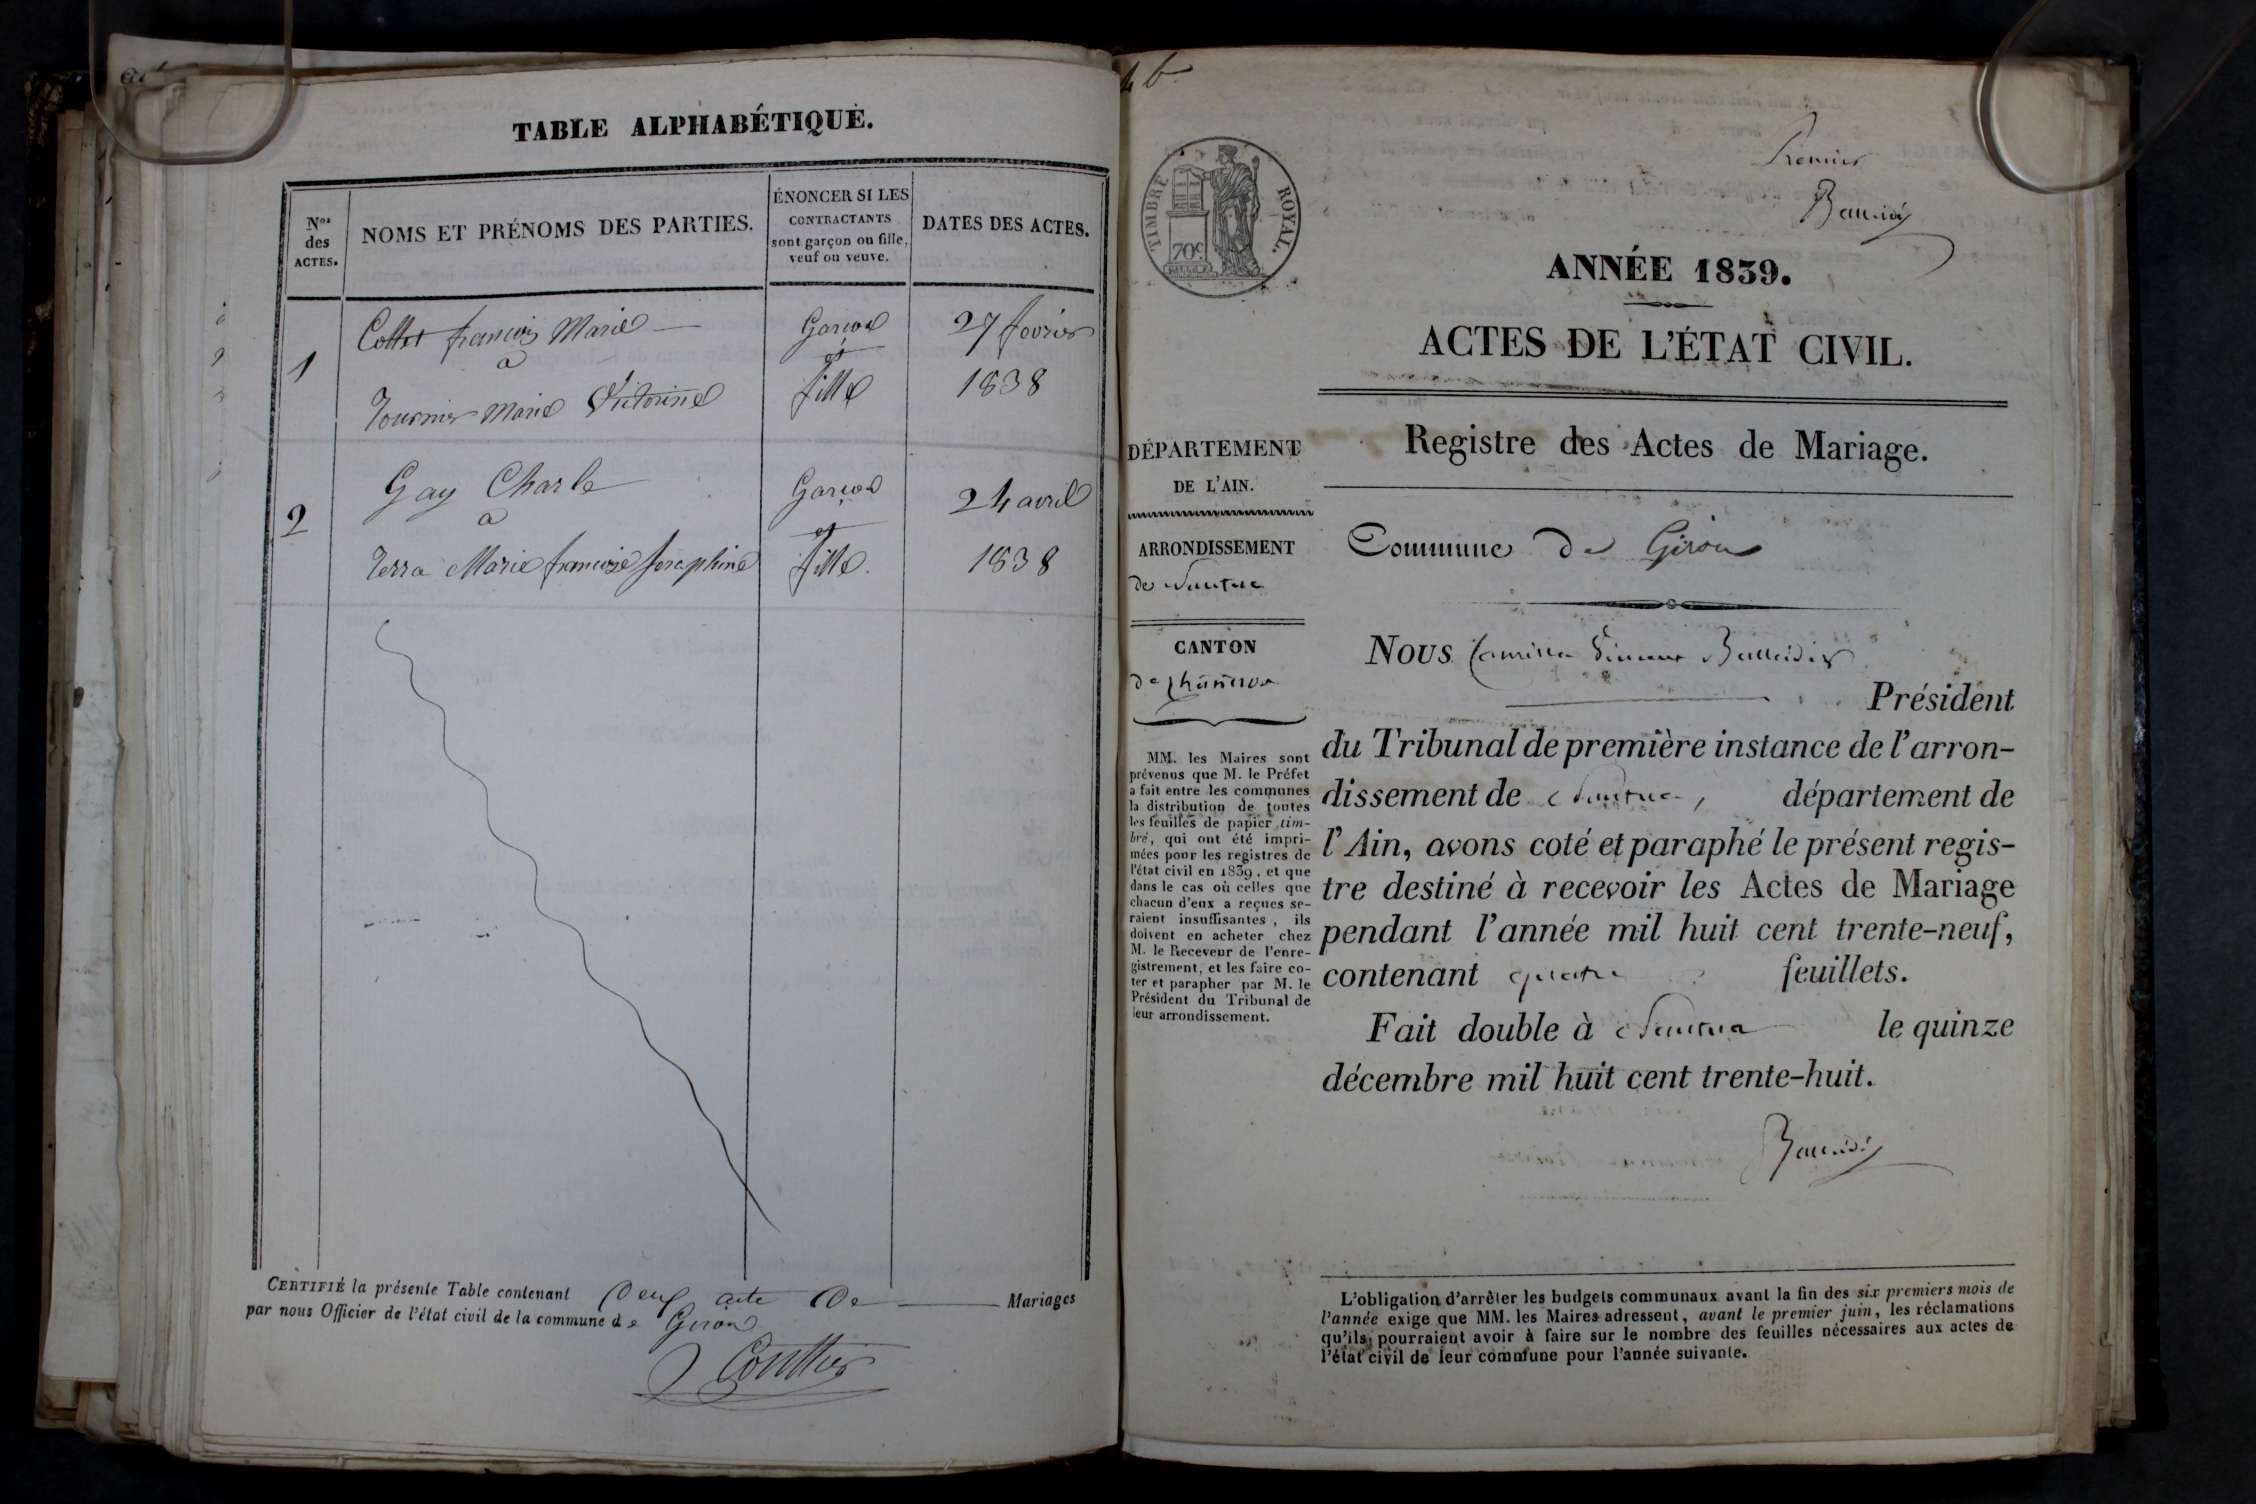 TABLE ALPHABÉTIQUE.
Nos des ACTES.
NOMS ET PRÉNOMS DES PARTIES.
ÉNONCER SI LES
CONTRACTANTS
sont garçon ou fille,
veuf ou veuve.
DATES DES ACTES.
1
Collet françois Marie
Garçon
27 fevrier
a
et
Tournier Marie Victorine
fille
1838
2
Gay Charle
Garçon
24 avril
a
et
Terra Marie françoise Josephine
fille.
1838
CERTIFIÉ la présente Table contenant Deux acte De Mariages
par nous Officier de l'état civil de la commune de Giron
TIMBRE ROYAL.
70c
Premier
ANNÉE 1839.
ACTES DE L'ÉTAT CIVIL.
Registre des Actes de Mariage.
DÉPARTEMENT
DE L'AIN.
ARRONDISSEMENT
de Nantua
CANTON
de
MM. les Maires sont
prévenus que M. le Préfet
a fait entre les communes
la distribution de toutes
les feuilles de papier tim-
bré, qui ont été impri-
mées pour les registres de
l'état civil en 1839, et que
dans le cas où celles que
chacun d'eux a reçues se-
raient insuffisantes, ils
doivent en acheter chez
M. le Receveur de l'enre-
gistrement, et les faire co-
ter et parapher par M. le
Président du Tribunal de
leur arrondissement.
Commune de Giron
Nous
Président
du Tribunal de première instance de l'arron-
dissement de Nantua, département de
l'Ain, avons coté et paraphé le présent regis-
tre destiné à recevoir les Actes de Mariage
pendant l'année mil huit cent trente-neuf,
contenant quatre feuillets.
Fait double à Nantua le quinze
décembre mil huit cent trente-huit.
L'obligation d'arrêter les budgets communaux avant la fin des six premiers mois de
l'année exige que MM. les Maires adressent, avant le premier juin, les réclamations
qu'ils pourraient avoir à faire sur le nombre des feuilles nécessaires aux actes de
l'état civil de leur commune pour l'année suivante.